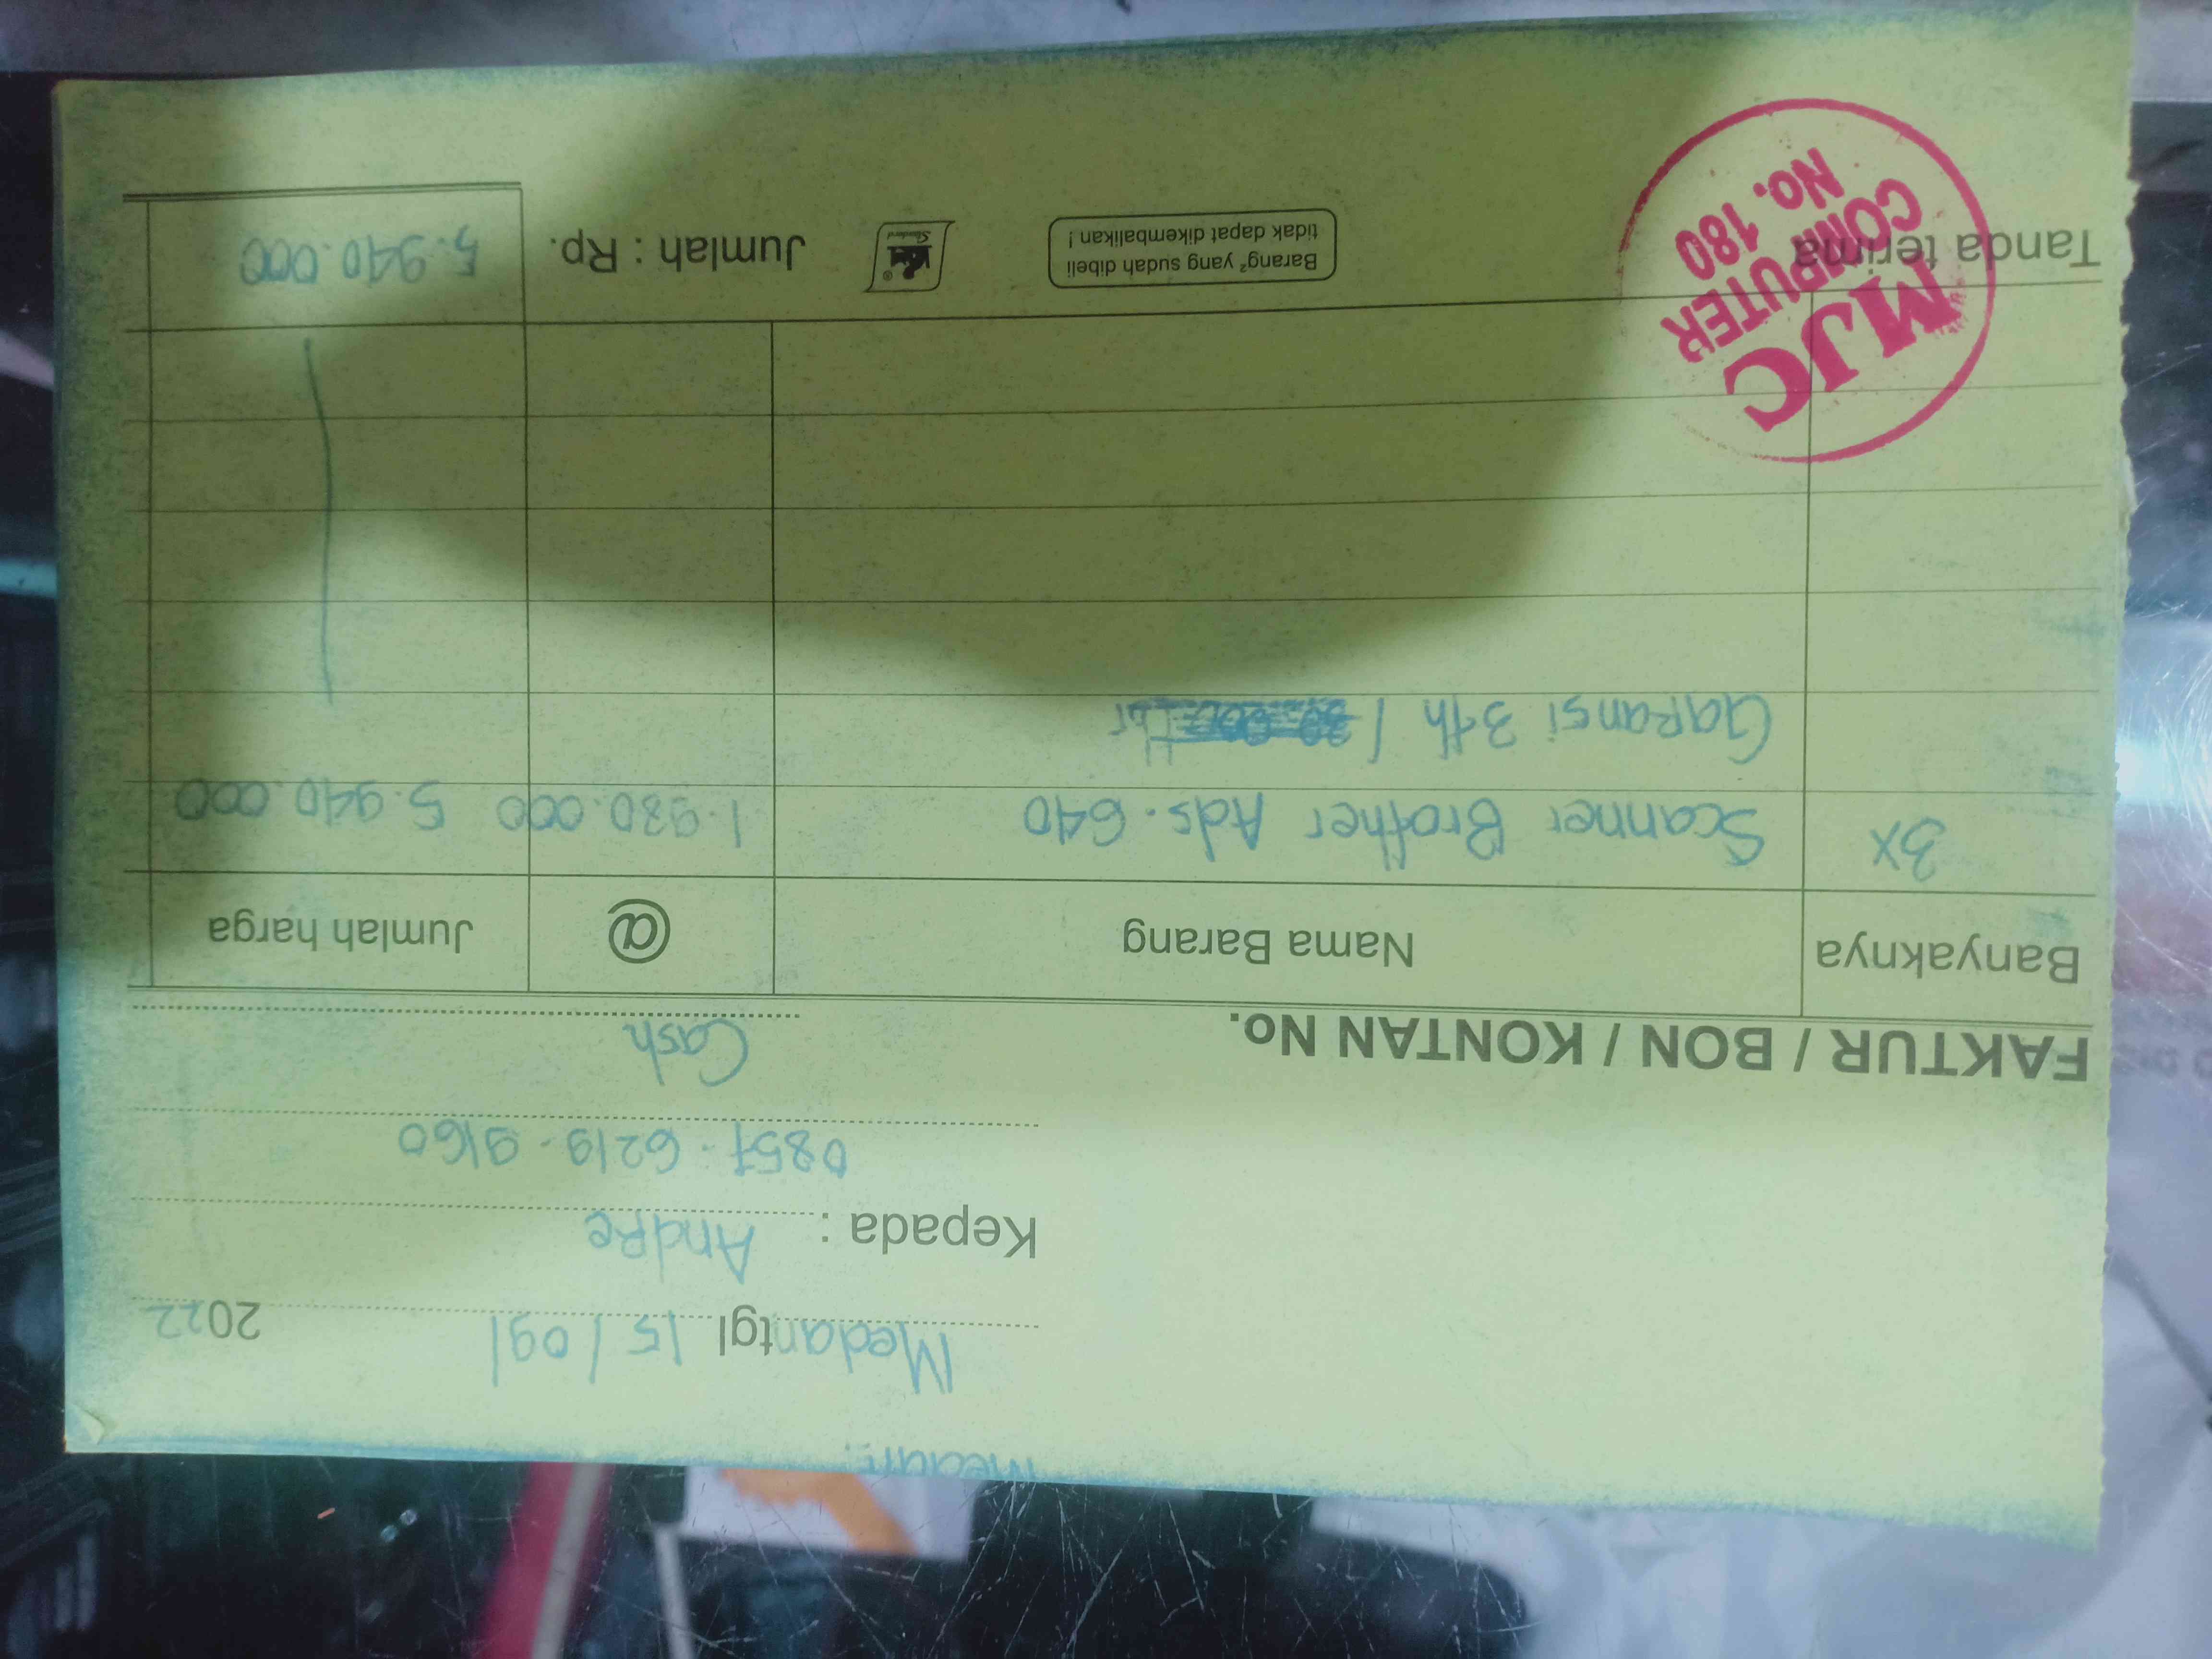 Medan tgl 15 / 09 2022
Kepada : Andre
0857 - 6219 - 9160
FAKTUR / BON / KONTAN No. Cash
Banyaknya Nama Barang @ Jumlah harga
3x Scanner Brother Ads. 640 1.980.000 5.940.000
Garansi 3 th /
Tanda terima
Barang² yang sudah dibeli
tidak dapat dikembalikan !
Jumlah : Rp. 5.940.000
MJC
COMPUTER
No. 180